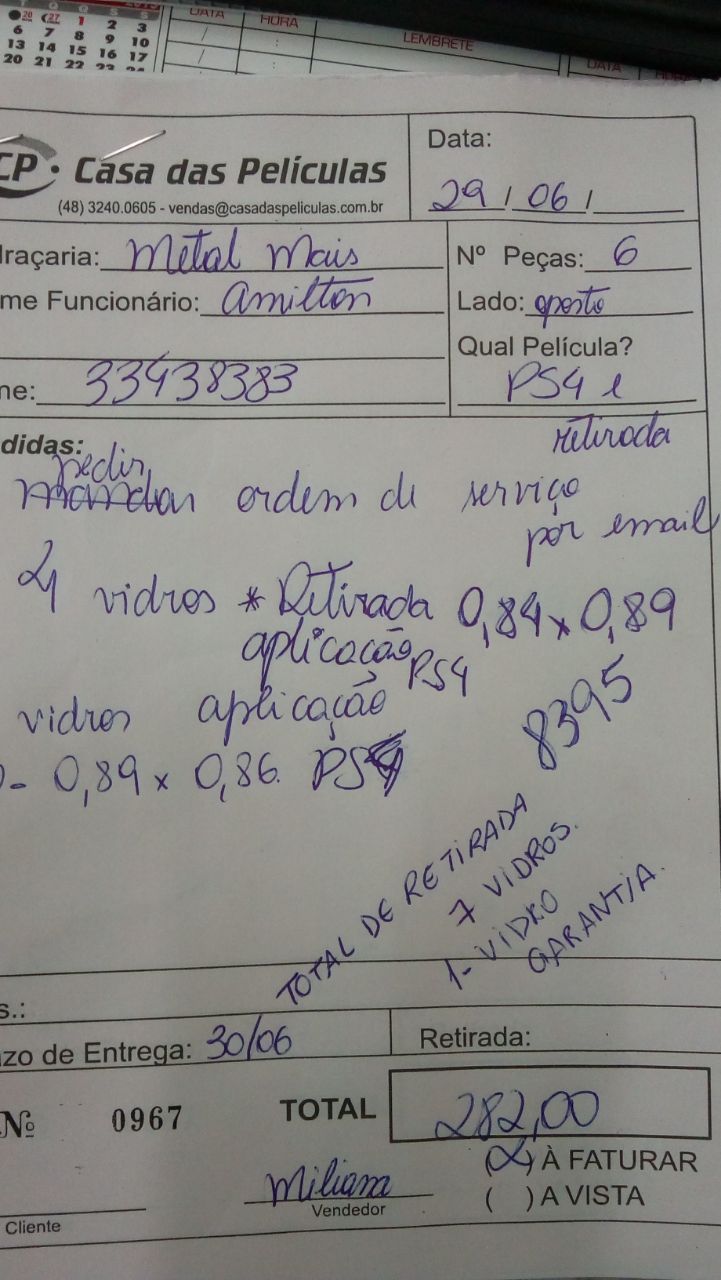 20 27 1 2 3
6 7 8 9 10
13 14 15 16 17
20 21 22
DATA HORA LEMBRETE DATA HORA
CP Casa das Películas
(48) 3240.0605 - vendas@casadaspeliculas.com.br
Data:
29 / 06 /
draçaria: Metal Mais
Nº Peças: 6
me Funcionário: Amilton
Lado: oposto
Qual Película?
ne: 33438383
PS4 e
retirada
didas:
pedir
mandar ordem de serviço
por email
4 vidros * Retirada 0,84 x 0,89
aplicação PS4
vidros aplicação
- 0,89 x 0,86. PS4
8395
TOTAL DE RETIRADA
7 VIDROS.
1- VIDRO
GARANTIA.
s.:
azo de Entrega: 30/06
Retirada:
Nº 0967
TOTAL 282,00
(X) À FATURAR
( ) A VISTA
Miliana
Vendedor
Cliente